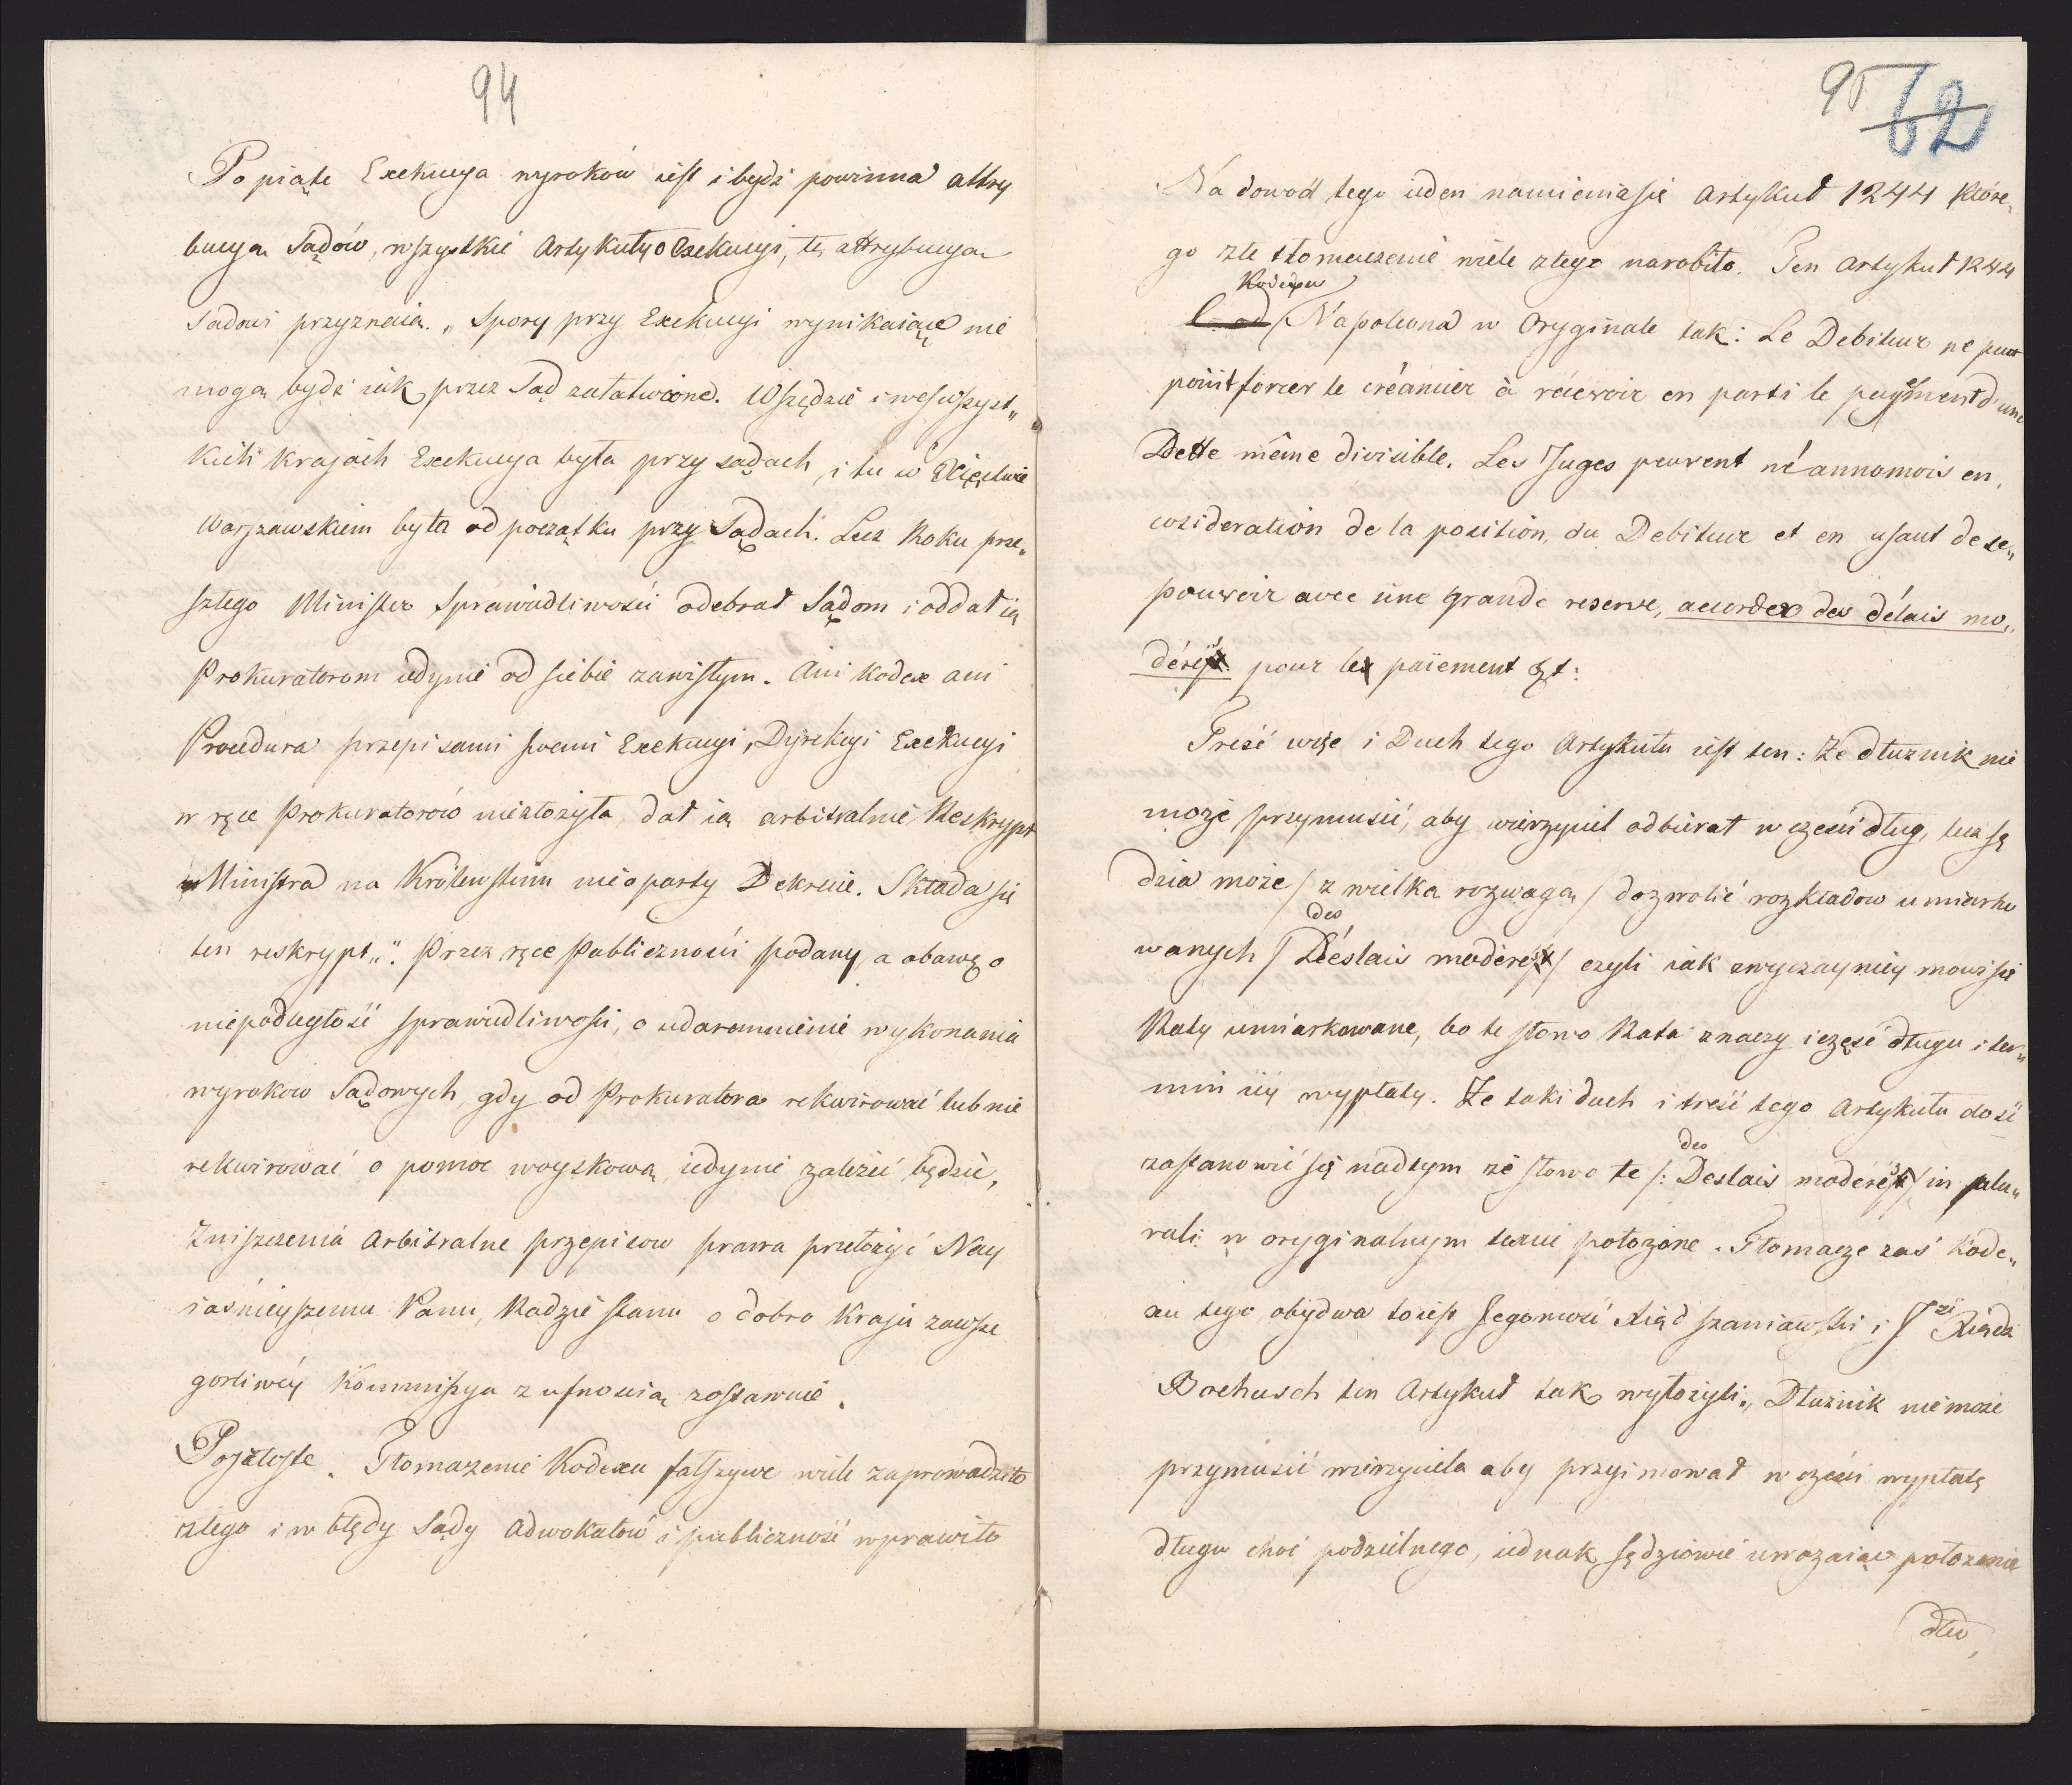 94
Po piąte Exekucya wyroków iest i bydź powinna attry
bucyą Sądów, wszystkie Artykuły o Exekucyi, tę attrybucyą
Sądowi przyznaią. „ Spory przy Exekucyi wynikaiące nie
mogą bydź iak przez Sąd załatwione. Wszędzie i we wszyst„
kich krajach Exekucya była przy sądach, i tu w Xięstwie
Warszawskiem była od początku przy Sądach. Lecz Roku prze„
szłego Minister Sprawiedliwości odebrał Sądom i oddał ią
Prokuratorom iedynie od siebie zawisłym. Ani Kodex ani
Procedura przepisami swemi Exekucyi, Dyrekcyi Exekucyi
w ręce Prokuratorów niezłożyła, dał ią arbitralnie Reskrypt
Ministra na Królewskim nieoparty Dekrecie. Składa się
ten reskrypt „. Przez ręce Publiczności podany, a obawę o
niepodległość sprawiedliwości, o udaremnienie wykonania
wyrokow Sądowych, gdy od Prokuratora rekwirować lub nie
rekwirować o pomoc woyskową iedynie zależeć będzie,
Zniszczenia Arbitralne przepisow prawa przełożyć Nay
iaśnieyszemu Panu, Radzie stanu o dobro Kraju zawsze
gorliwéy Kommissya z ufnością zostawuie.
Poszóste. Tłomaczenie Kodexu fałszywe wiele zaprowadziło
złego i w błędy Sądy Adwokatów i publiczność wprawiło
95 62
Na dowód tego ieden namienia się Artykuł 1244 które„
go złe tłomaczenie wiele złego narobiło. Ten Artykuł 1244
Kodexu
Cod / Napoleona w Oryginale tak: Le Debiteur ne peut
point forcer le créancier à récevoir en parti le payement d'une
Dette même divisible. Les Juges peuvent néannomois en,
cosideration de la position, du Debiteur et en usant de ce„
pouvoir avec une grande reserve, accorder des délais mo„
dérés pour le paiement &t:
Treść więc i Duch tego Artykułu iest ten: Że dłużnik nie
może przymusić, aby wierzyciel odbierał w części dług, lecz sę
dzia może / z wielką rozwagą / dozwolić rozkładow umiarko
des
wanych / Déslais moderés / czyli iak zwyczayniey mowi się
Raty umiarkowane, bo te słowo Rata znaczy i część długu i ter„
min iéy wypłaty. Że taki duch i treść tego Artykułu dość
des
zastanowić się nad tym że słowo te /: Deslais moderés / in plu„
rali w oryginalnym texcie położone. Tłomacze zaś Kode„
xu tego obydwa toiest Jegomość Xiąd Szaniawski i Xiądz
Bochusch ten Artykuł tak wyłożyli „ Dłużnik nie może
przymusić wierzyciela aby przyimował w części wypłatę
długu choć podzielnego, iednak sędziowie uważaiąc położenie
dłu,